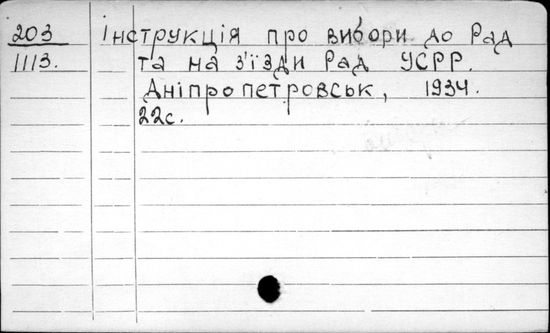 203 Інструкція про вибори до Рад
1113. та на з'їзди Рад УСРР.
Дніпропетровськ, 1934.
22с.